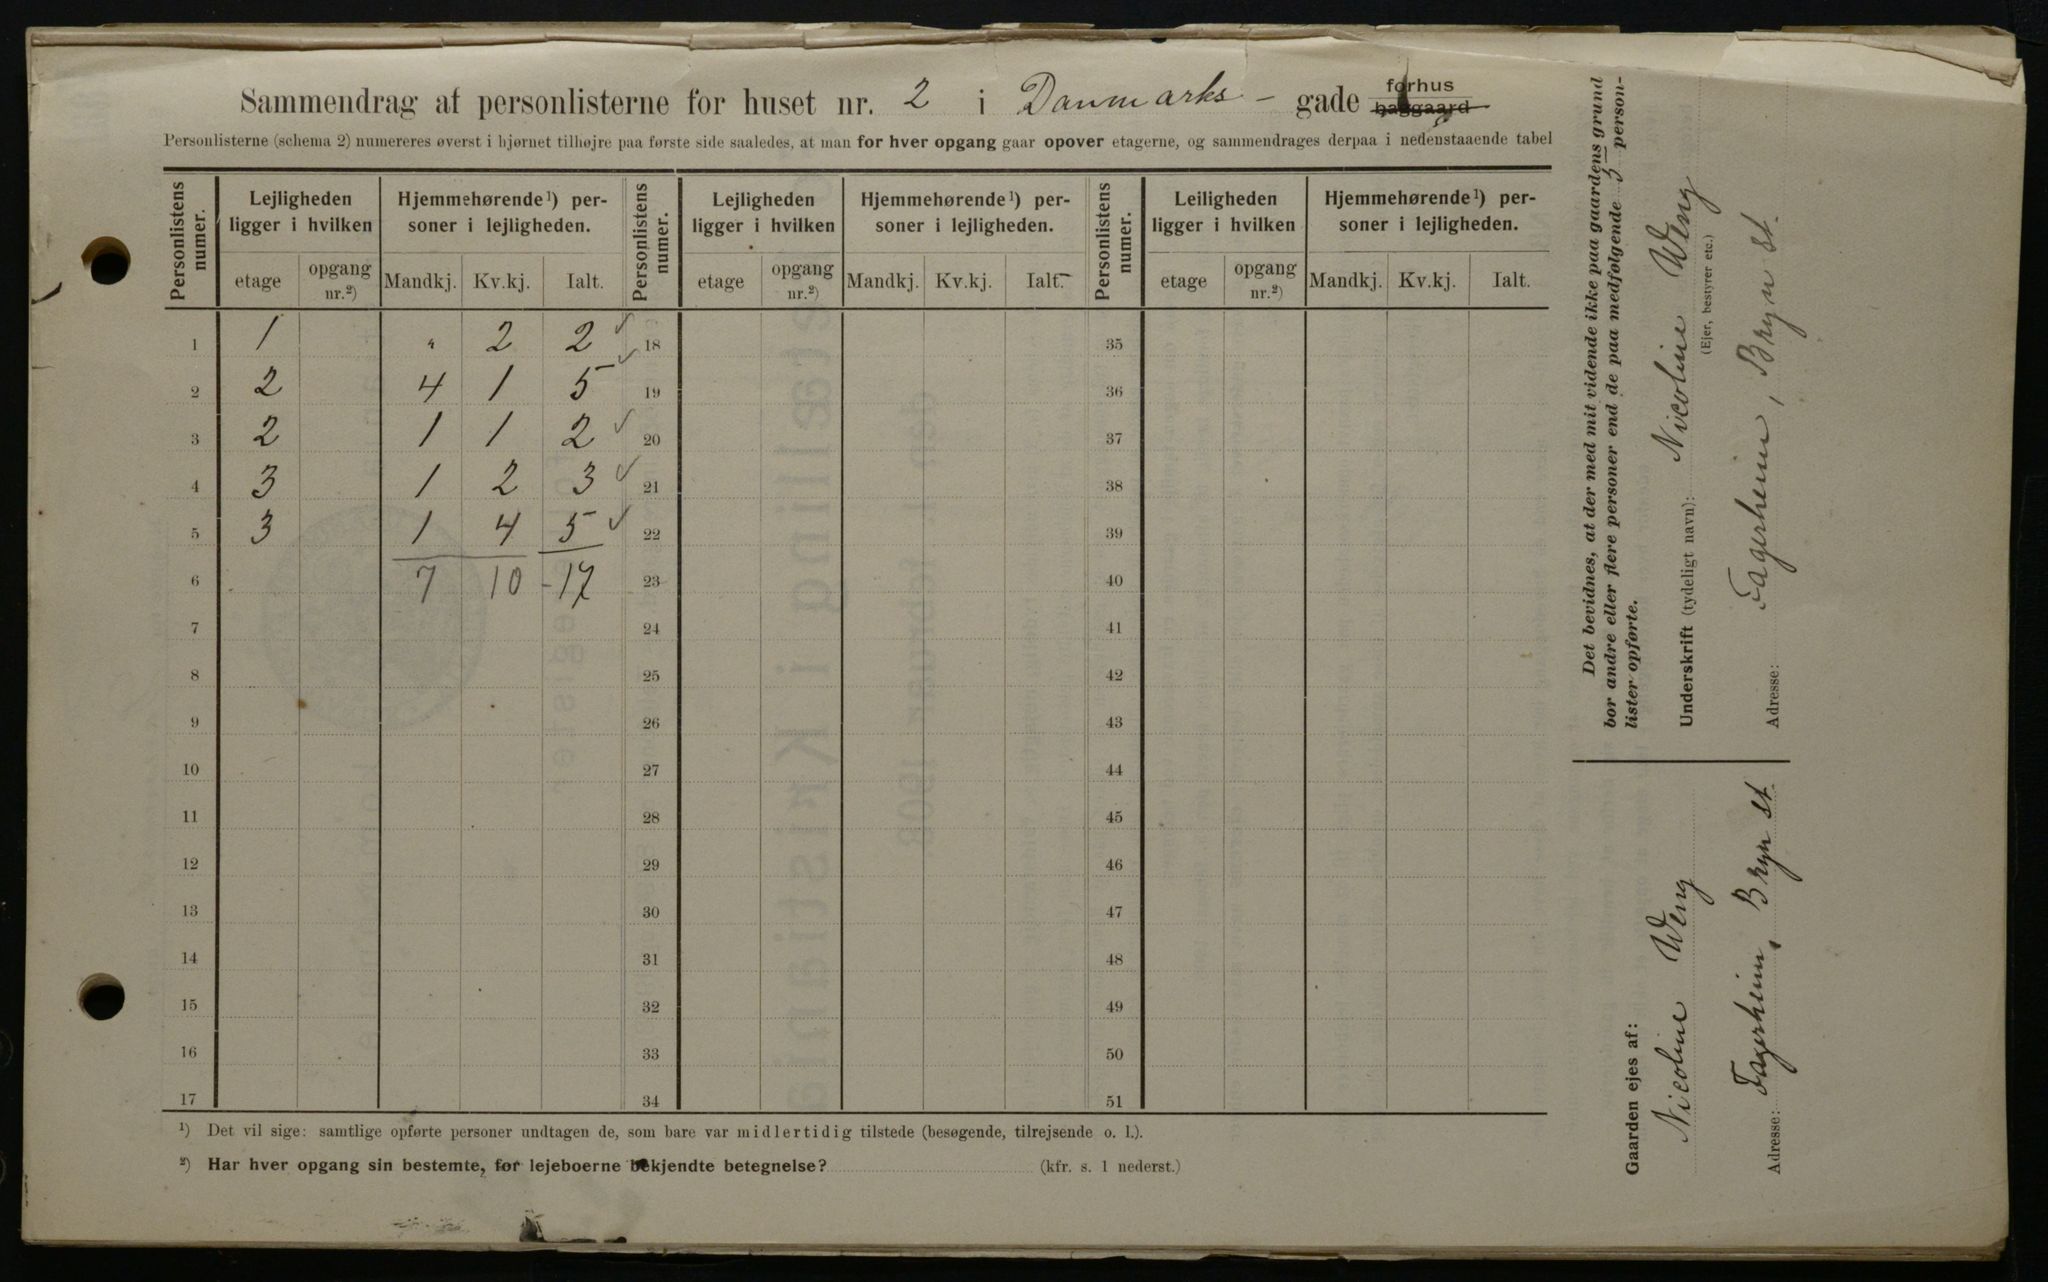 Sammendrag af personlisterne for huset nr. 2 i Danmarks- gade forhus
baggaard
Personlisterne (schema 2) numereres øverst i hjørnet tilhøjre paa første side saaledes, at man for hver opgang gaar opover etagerne, og sammendrages derpaa i nedenstaaende tabel
Personlistens numer. Lejligheden ligger i hvilken Hjemmehørende¹) personer i lejligheden. Personlistens numer. Lejligheden ligger i hvilken Hjemmehørende¹) personer i lejligheden. Personlistens numer. Leiligheden ligger i hvilken Hjemmehørende¹) personer i lejligheden.
etage opgang nr.²) Mandkj. Kv.kj. Ialt. etage opgang nr.²) Mandkj. Kv.kj. Ialt. etage opgang nr.²) Mandkj. Kv.kj. Ialt.
1 1 " 2 2 18 35
2 2 4 1 5 19 36
3 2 1 1 2 20 37
4 3 1 2 3 21 38
5 3 1 4 5 22 39
6 7 10 -17 23 40
7 24 41
8 25 42
9 26 43
10 27 44
11 28 45
12 29 46
13 30 47
14 31 48
15 32 49
16 33 50
17 34 51
¹) Det vil sige: samtlige opførte personer undtagen de, som bare var midlertidig tilstede (besøgende, tilrejsende o. l.).
²) Har hver opgang sin bestemte, for lejeboerne bekjendte betegnelse? (kfr. s. 1 nederst.)
Det bevidnes, at der med mit vidende ikke paa gaardens grund
bor andre eller flere personer end de paa medfølgende 5 person-
lister opførte.
Underskrift (tydeligt navn): Nicoline Weng
(Ejer, bestyrer etc.)
Adresse: Fagerheim, Bryn st.
Gaarden ejes af:
Nicoline Weng
Adresse: Fagerheim, Bryn st.